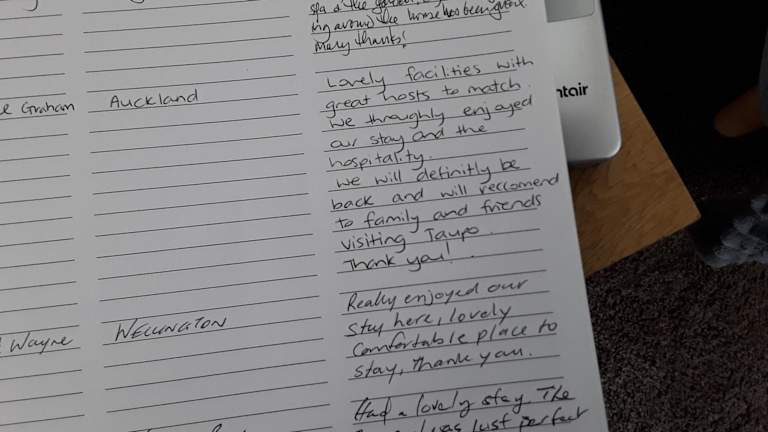 spa & the
ing around) the home has been great.
Many thanks!
Graham Auckland
Lovely facilities with
great hosts to match.
We throughly enjoyed
our stay and the
hospitality.
we will definitly be
back and will reccomend
to family and friends
visiting Taupo.
Thank you!
ntair
Wayne WELLINGTON
Really enjoyed our
stey here, lovely
Comfortable place to
stay, thank you.
Had a lovely stay The
was just perfect